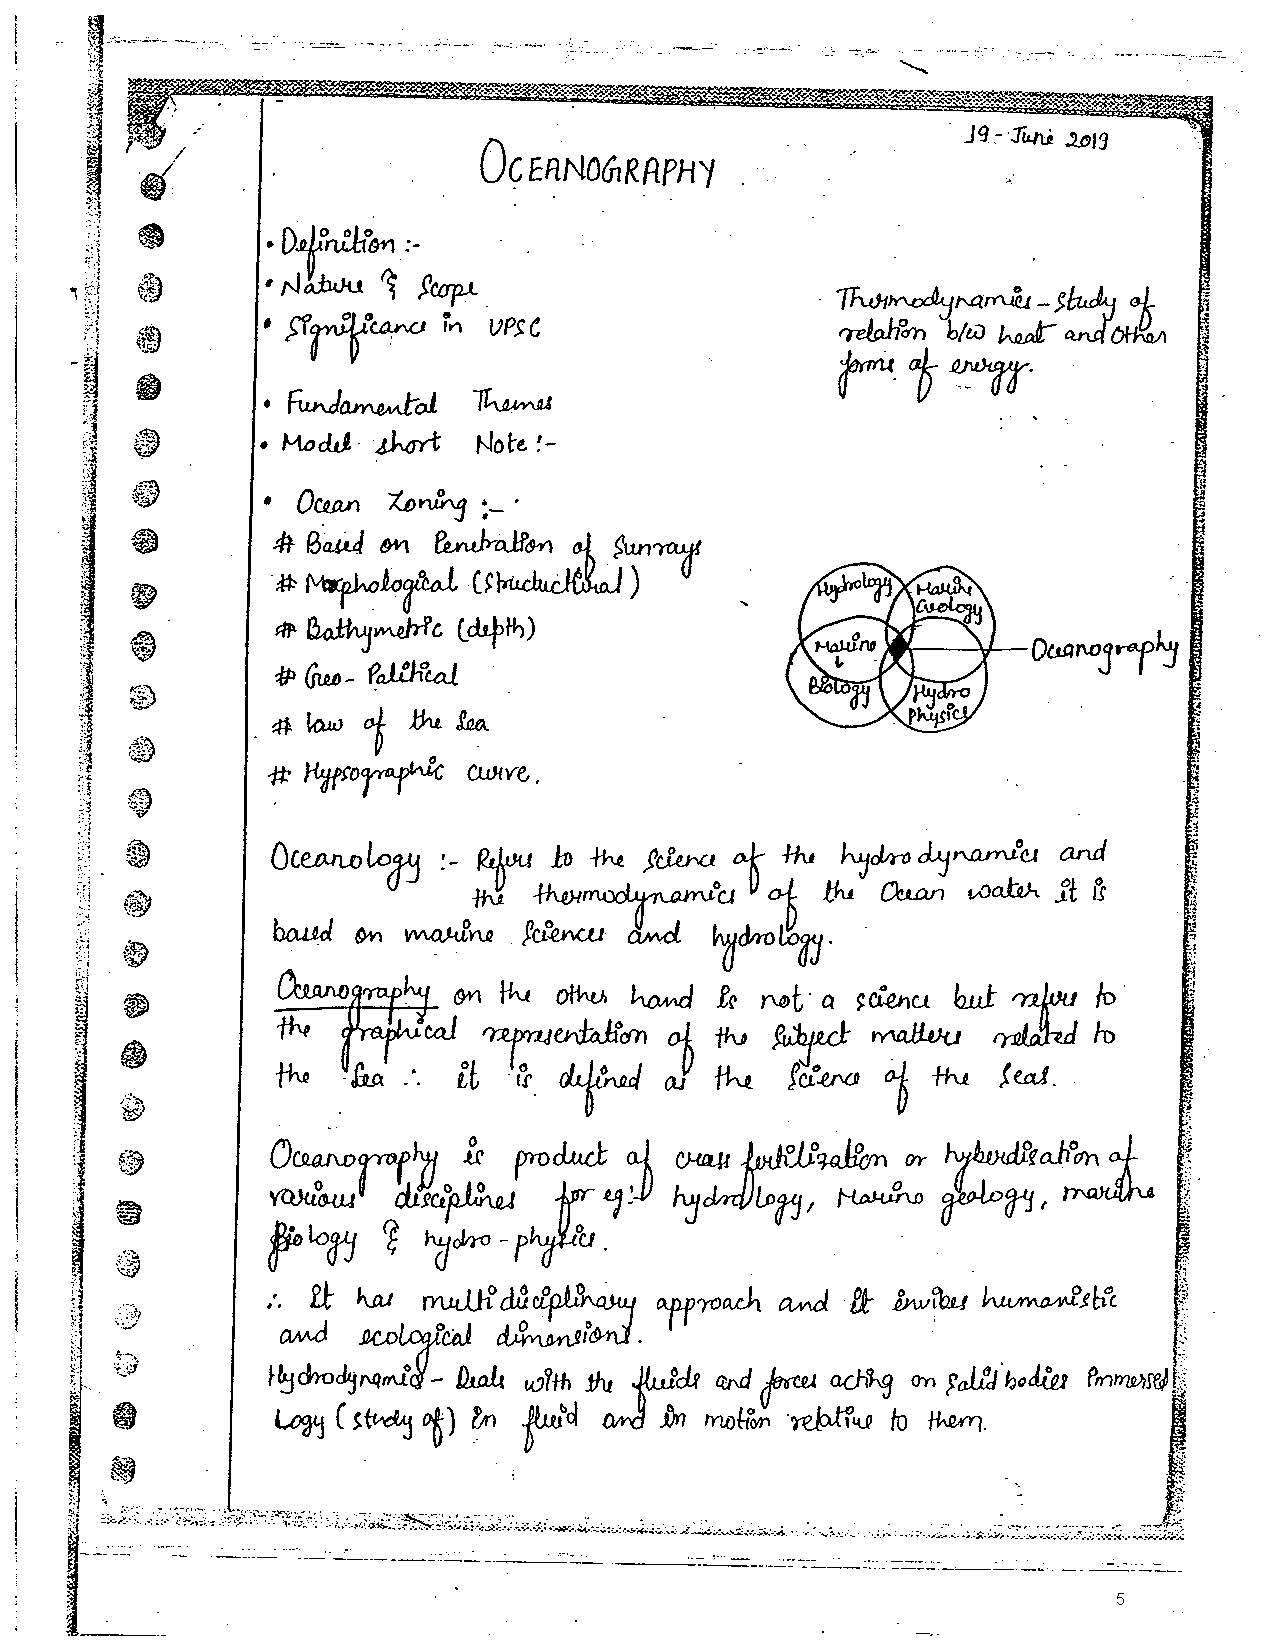 19 - June 2019
OCEANOGRAPHY
• Definition :-
• Nature & Scope
• Significance in UPSC
Thermodynamics - study of
relation b/w heat and other
forms of energy.
• Fundamental Themes
• Model short Note :-
• Ocean Zoning :-
# Based on Penetration of Sunrays
# Morphological (Structural)
# Bathymetric (depth)
# Geo - Political
# law of the Sea
# Hypsographic curve.
Hydrology
Marine
Geology
Marine
↓
Biology
Hydro
Physics
Oceanography
Oceanology :- Refers to the Science of the hydrodynamics and
the thermodynamics of the Ocean water it is
based on marine Sciences and hydrology.
Oceanography on the other hand is not a science but refers to
the graphical representation of the Subject matters related to
the Sea ∴ it is defined as the Science of the Seas.
Oceanography is product of cross fertilization or hyberdisation of
various disciplines for eg:- hydrology, Marine geology, marine
Biology & hydro - physics.
∴ It has multidiciplinary approach and it invibes humanistic
and ecological dimensions.
Hydrodynamics - Deals with the fluids and forces acting on Solid bodies immersed
Logy (study of) in fluid and in motion relative to them.
5